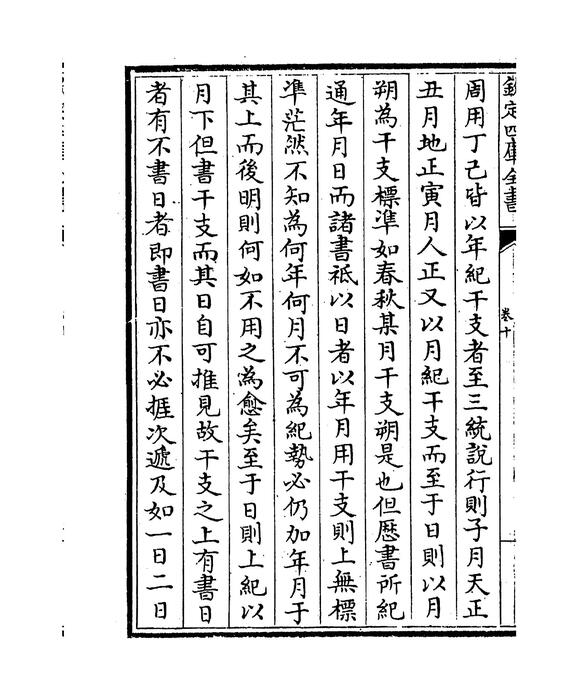 欽定四庫全書
卷十
周用丁己皆以年紀干支者至三統說行則子月天正
丑月地正寅月人正又以月紀干支而至于日則以月
朔為干支標準如春秋某月干支朔是也但厯書所紀
通年月日而諸書祗以日者以年月用干支則上無標
準茫然不知為何年何月不可為紀勢必仍加年月于
其上而後明則何如不用之為愈矣至于日則上紀以
月下但書干支而其日自可推見故干支之上有書日
者有不書日者即書日亦不必挨次遞及如一日二日